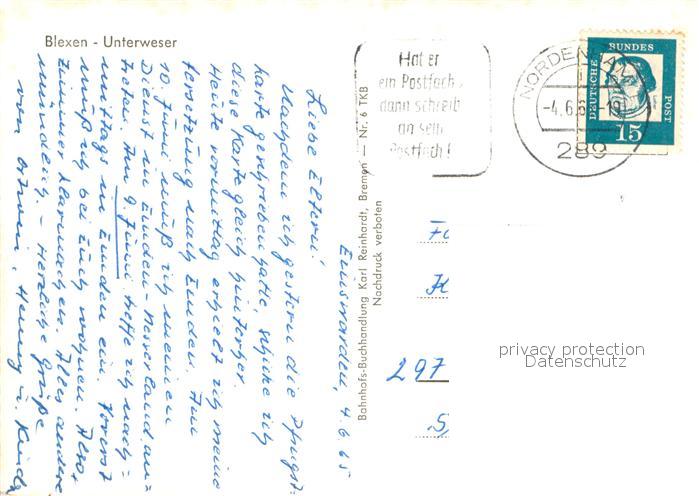 Blexen - Unterweser
Einswarden, 4.6.65
Liebe Eltern!
Nachdem ich gestern die Pfingst-
karte geschrieben hatte, schicke ich
diese Karte gleich hinterher.
Heute vormittag erhielt ich meine
Versetzung nach Emden. Am
10. Juni muß ich meinen
Dienst in Emden-Nesserland an-
treten. Am 9. Juni treffe ich nach-
mittags in Emden ein. Vorerst
muß ich bei Euch wohnen. Also
Zimmer klarmachen. Alles andere
mündlich. - Herzliche Grüße
von Henny u. Kindern
Bahnhofs-Buchhandlung Karl Reinhardt, Bremen - Nr. 6 TKB
Nachdruck verboten
Hat er
ein Postfach,
dann schreib
an sein
Postfach!
NORDENHAM
-4.6.6 -19
289
DEUTSCHE
BUNDES
POST
15
297
privacy protection
Datenschutz